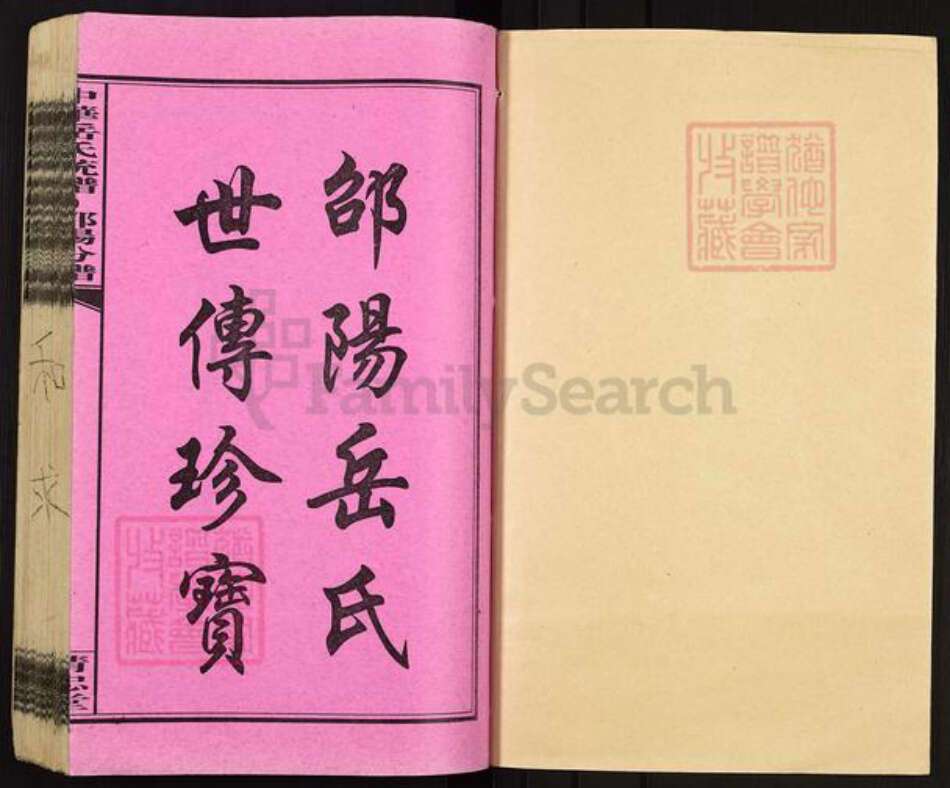 邰陽岳氏
世傳珍寶
中華岳氏統譜
郃陽分譜
精忠堂
猶他家
譜學會
收藏
猶他家
譜學會
收藏
FamilySearch